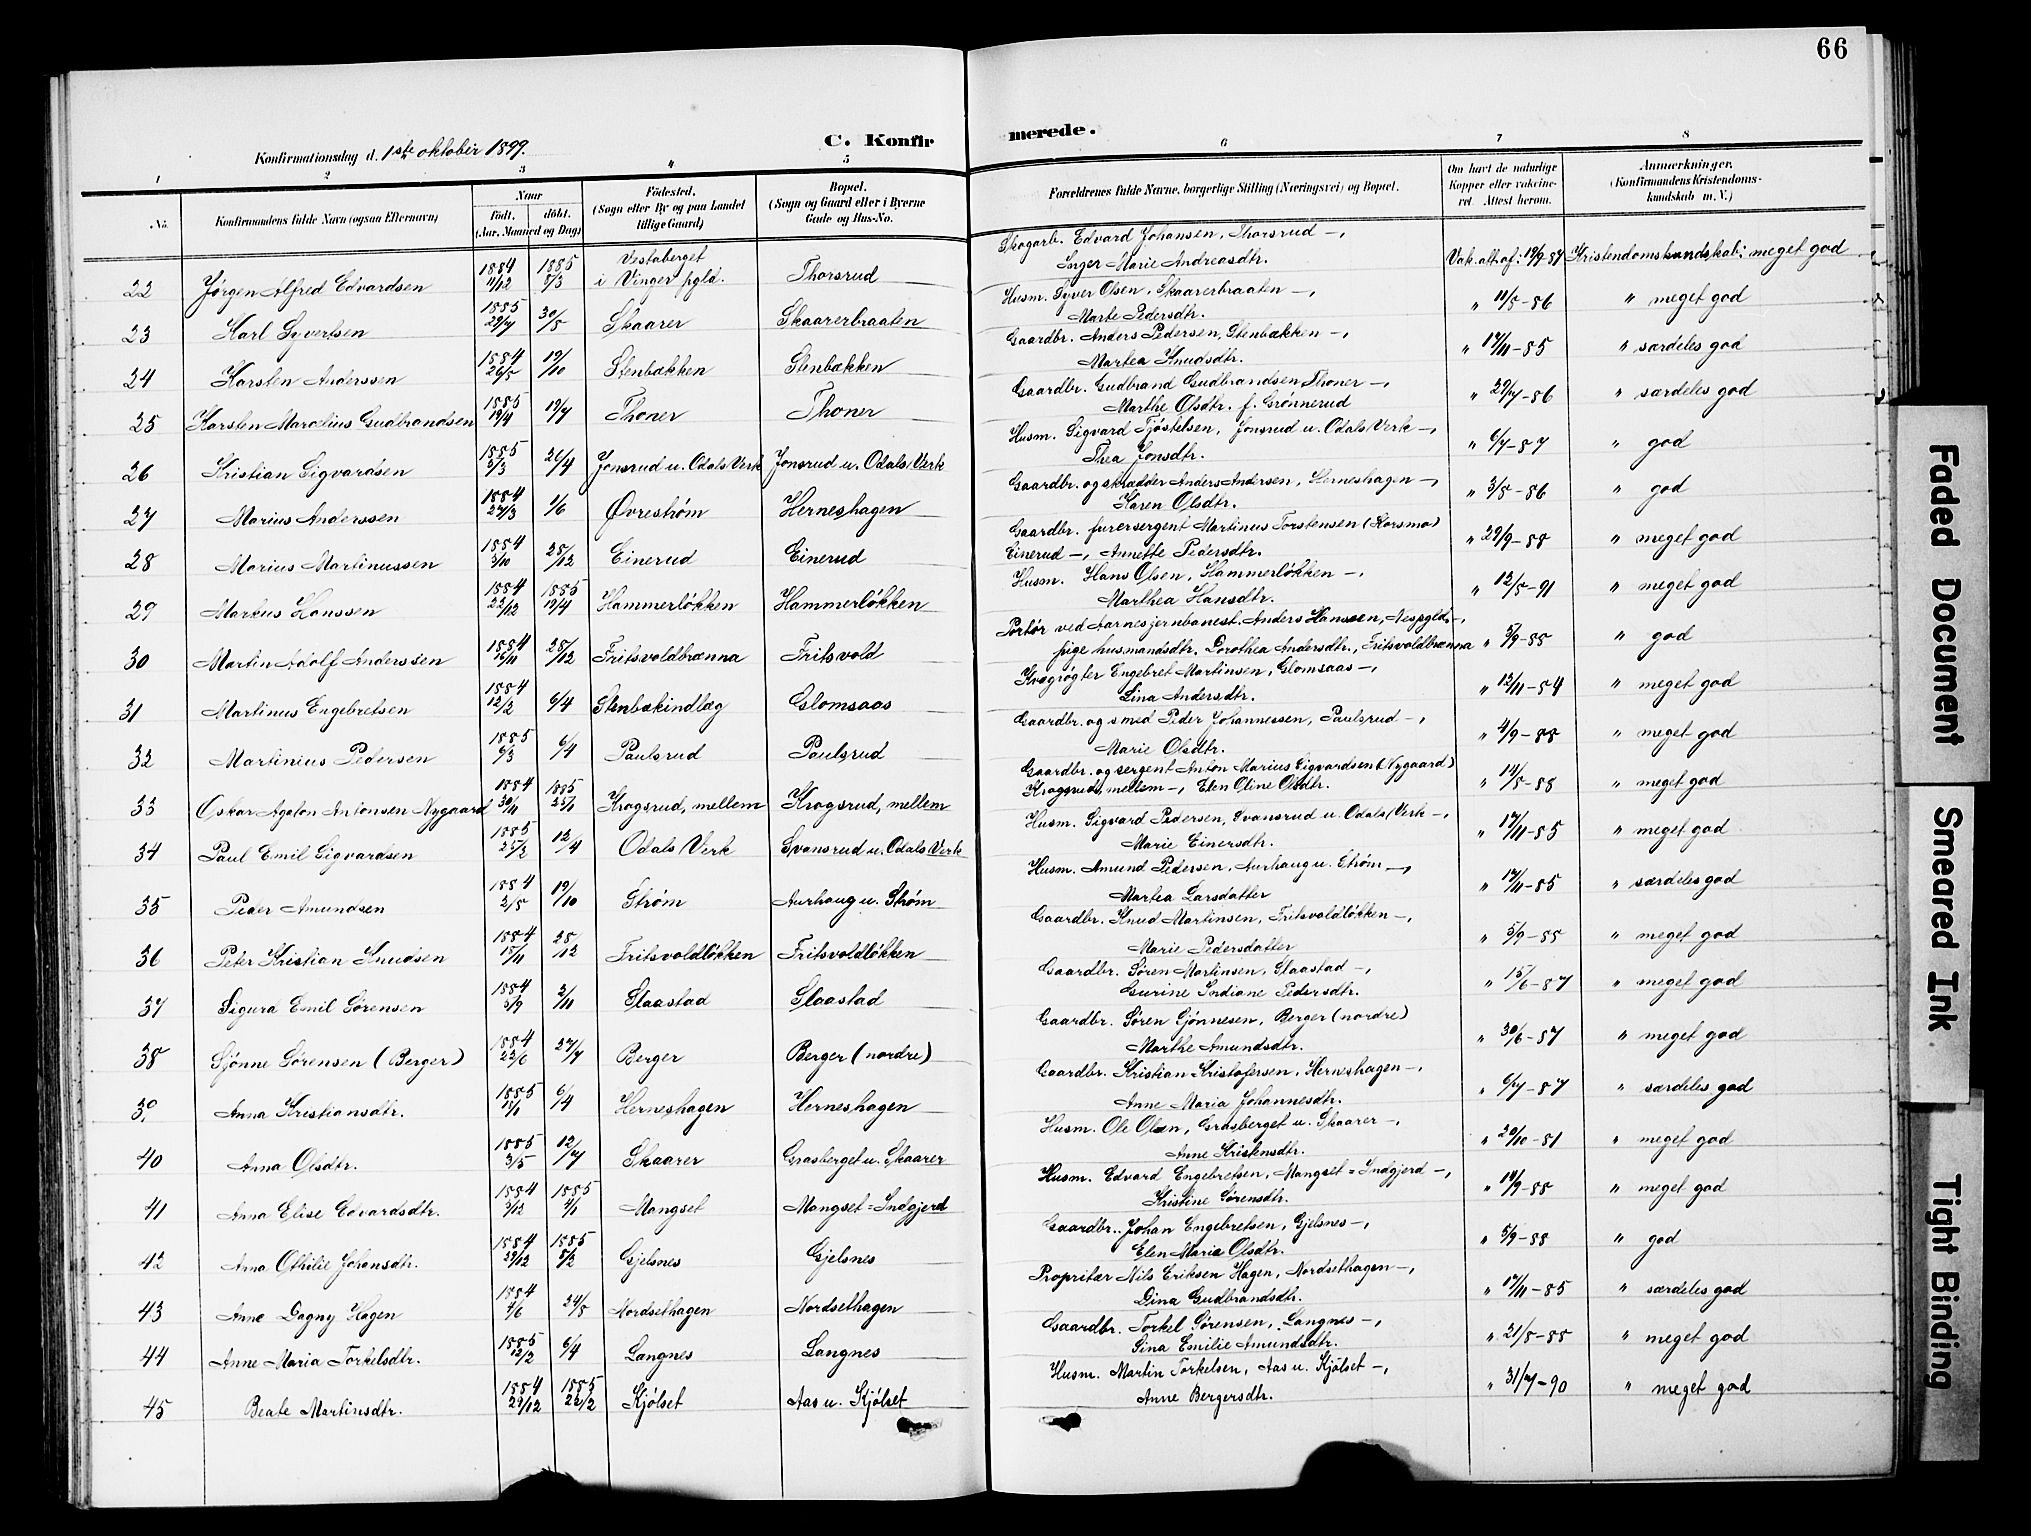 66
Konfirmationsdag d. 1ste oktober 1899.
C. Konfir
merede.
1 2 3 4 5
6 7 8
No. Konfirmandens fulde Navn (ogsaa Efternavn) Naar født. døbt. (Aar, Maaned og Dag) Fødested. (Sogn eller By og paa Landet tillige Gaard) Bopæl. (Sogn og Gaard eller i Byerne Gade og Hus-No.
Forældrenes fulde Navne, borgerlige Stilling (Næringsvei) og Bopæl. Om havt de naturlige Kopper eller vakcineret. Attest herom. Anmærkninger. (Konfirmandens Kristendomskundskab m. V.)
22 Jørgen Alfred Edvardsen 1884 11/12 1885 8/3 Vestaberget i Vinger pgld. Thorsrud
Skogarb. Edvard Johansen, Thorsrud –, Inger Marie Andreasdtr. Vak. att. af: 19/9-87 Kristendomskundskab: meget god
23 Karl Syvertsen 1885 29/4 30/5 Skaarer Skaarerbraaten
Husm. Syver Olsen, Skaarerbraaten –, Marte Pedersdtr. " 11/5-86 " meget god
24 Karsten Anderssen 1884 26/5 19/10 Stenbækken Stenbækken
Gaardbr. Anders Pedersen, Stenbækken –, Martea Knudsdtr. " 17/11-85 " særdeles god
25 Karsten Marcelius Gudbrandsen 1885 19/4 19/7 Thoner Thoner
Gaardbr. Gudbrand Gudbrandsen Thoner –, Marthe Olsdtr. f. Grønnerud " 29/7-86 " særdeles god
26 Kristian Sigvardsen 1885 3/3 26/4 Jonsrud u. Odals Verk Jonsrud u. Odals Verk
Husm. Sigvard Tjøstelsen, Jonsrud u. Odals Verk –, Thea Jonsdtr. " 6/7-87 " god
27 Marius Anderssen 1884 27/3 1/6 Øvrestrøm Herneshagen
Gaardbr. og skrædder Anders Andersen, Herneshagen –, Karen Olsdtr. " 3/5-86 " god
28 Marius Martinussen 1884 3/10 28/12 Einerud Einerud
Gaardbr. furersergent Martinus Torstensen (Korsmo) Einerud –, Annette Pedersdtr. " 29/9-88 " meget god
29 Markus Hanssen 1884 22/12 1885 19/4 Hammerløkken Hammerløkken
Husm. Hans Olsen, Hammerløkken –, Marthea Hansdtr. " 12/5-91 " meget god
30 Martin Adolf Anderssen 1884 16/11 28/12 Fritsvoldbrænna Fritsvold
Portør ved Aarnes jernbanest. Anders Hanssen, Nes pgld. –, pige husmandsdtr. Dorothea Andersdtr., Fritsvoldbrænna " 5/9-85 " god
31 Martinus Engebretsen 1884 12/2 6/4 Stenbækindlæg Glomsaas
Kvægrøgter Engebret Martinsen, Glomsaas –, Lina Andersdtr. " 12/11-84 " meget god
32 Martinius Pedersen 1885 6/3 6/4 Paulsrud Paulsrud
Gaardbr. og smed Peder Johannessen, Paulsrud –, Marie Olsdtr. " 4/9-88 " meget god
33 Oskar Agaton Antonsen Nygaard 1884 30/11 1885 25/1 Krogsrud, mellem Krogsrud, mellem
Gaardbr. og sergent Anton Marius Sigvardsen (Nygaard) Krogsrud, mellem –, Elen Oline Olsdtr. " 14/5-88 " meget god
34 Paul Emil Sigvardsen 1885 25/2 12/4 Odals Verk Svansrud u. Odals Verk
Husm. Sigvard Pedersen, Svansrud u. Odals Verk –, Marie Einersdtr. " 17/11-85 " meget god
35 Peder Amundsen 1884 2/5 19/10 Strøm Aurhaug u. Strøm
Husm. Amund Pedersen, Aurhaug u. Strøm –, Martea Larsdatter " 17/11-85 " særdeles god
36 Peter Kristian Knudsen 1884 15/11 28/12 Fritsvoldløkken Fritsvoldløkken
Gaardbr. Knud Martinsen, Fritsvoldløkken –, Marie Pedersdatter " 5/9-85 " meget god
37 Sigurd Emil Sørensen 1884 5/9 2/11 Slaastad Slaastad
Gaardbr. Søren Martinsen, Slaastad –, Gurine Indiane Pedersdtr. " 15/6-87 " meget god
38 Sjønne Sørensen (Berger) 1884 22/6 27/7 Berger Berger (nordre)
Gaardbr. Søren Sjønnesen, Berger (nordre) Marthe Amundsdtr. " 30/6-87 " meget god
39 Anna Kristiansdtr. 1885 18/1 6/4 Herneshagen Herneshagen
Gaardbr. Kristian Kristofersen, Herneshagen –, Anne Maria Johannesdtr. " 6/7-87 " særdeles god
40 Anna Olsdtr. 1885 3/5 12/7 Skaarer Grasberget u. Skaarer
Husm. Ole Olsen, Grasberget u. Skaarer –, Anne Kristensdtr. " 20/10-81 " meget god
41 Anna Elise Edvardsdtr. 1884 3/12 1885 4/1 Mangset Mangset=Indgjerd
Husm. Edvard Engebretsen, Mangset=Indgjerd –, Kristine Sørensdtr. " 14/9-88 " meget god
42 Anna Othilie Johansdtr. 1884 29/12 1885 8/2 Gjelsnes Gjelsnes
Gaardbr. Johan Engebretsen, Gjelsnes –, Elen Maria Olsdtr. " 5/9-88 " god
43 Anne Dagny Hagen 1884 4/6 24/8 Nordsethagen Nordsethagen
Propritær Nils Eriksen Hagen, Nordsethagen –, Dina Gudbrandsdtr. " 17/11-85 " særdeles god
44 Anne Maria Torkelsdtr. 1885 12/2 6/4 Langnes Langnes
Gaardbr. Torkel Sørensen, Langnes –, Gina Emilie Amundsdtr. " 21/5-88 " meget god
45 Beate Martinsdtr. 1884 29/12 1885 22/2 Kjølset Aas u. Kjølset
Husm. Martin Torkelsen, Aas u. Kjølset –, Anne Bergersdtr. " 31/7-90 " meget god
Faded Document
Smeared Ink
Tight Binding